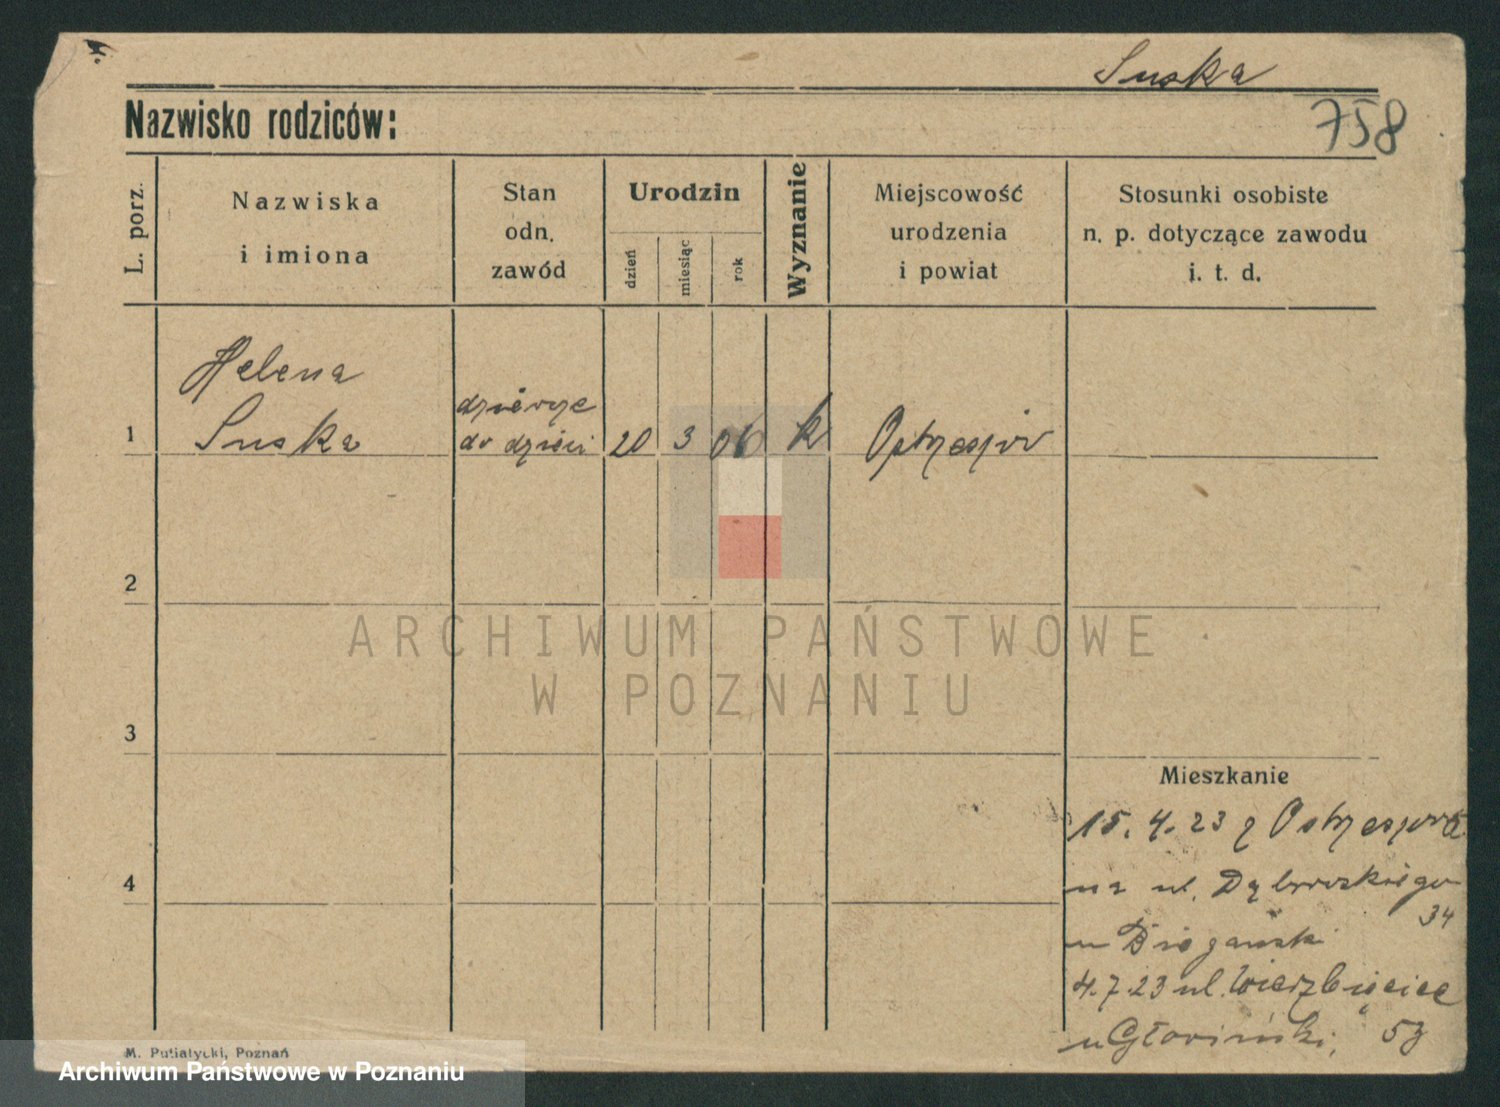 Suska
758
Nazwisko rodziców:
L. porz.
Nazwiska
i imiona
Stan
odn.
zawód
Urodzin
dzień
miesiąc
rok
Wyznanie
Miejscowość
urodzenia
i powiat
Stosunki osobiste
n. p. dotyczące zawodu
i. t. d.
Helena
1 Suska
do dzieci 20 3 06 k
2
3
4
ARCHIWUM PAŃSTWOWE
W POZNANIU
Mieszkanie
15. 4. 23 z Ostrzeszowa
na ul. Dąbrowskiego
34
u
4.7.23 ul. Wierzbięcice
u 53
M. Putiatycki, Poznań
Archiwum Państwowe w Poznaniu